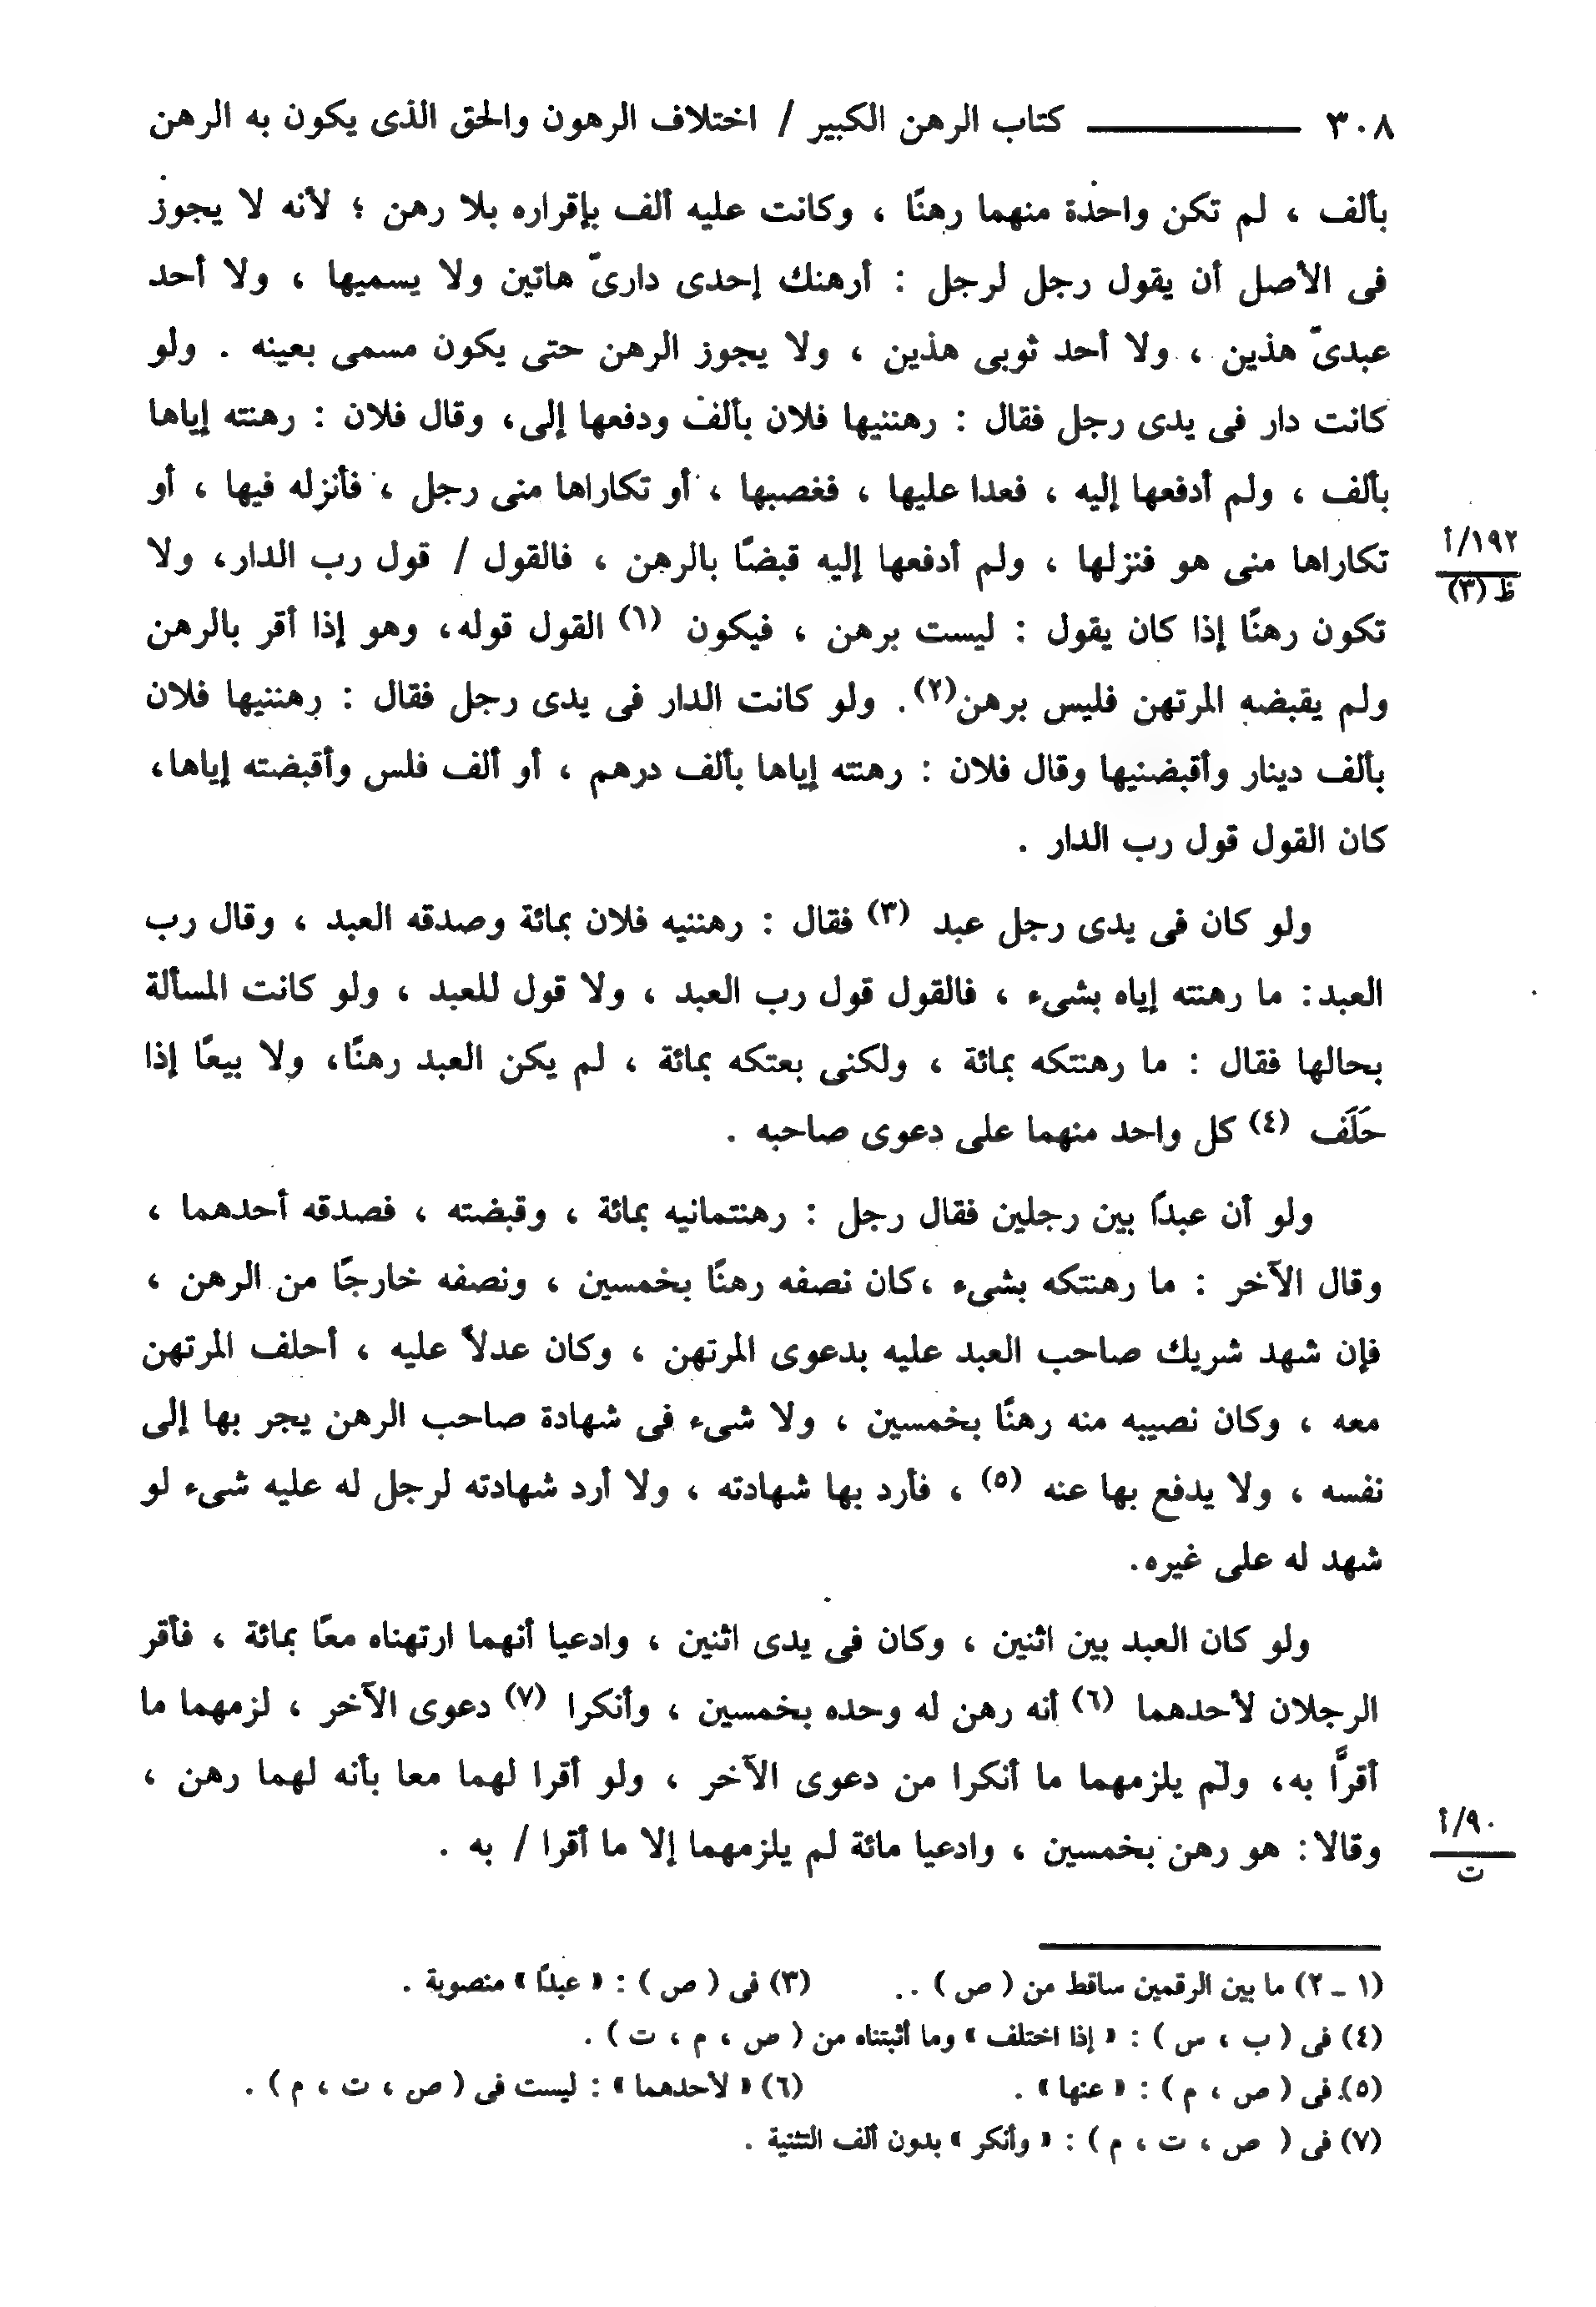 ٣٠٨ ـــــــــــ كتاب الرهن الكبير / اختلاف الرهون والحق الذى يكون به الرهن
بألف ، لم تكن واحدة منهما رهنًا ، وكانت عليه ألف بإقراره بلا رهن ؛ لأنه لا يجوز
فى الأصل أن يقول رجل لرجل : أرهنك إحدى دارىّ هاتين ولا يسميها ، ولا أحد
عبدىّ هذين ، ولا أحد ثوبى هذين ، ولا يجوز الرهن حتى يكون مسمى بعينه . ولو
كانت دار فى يدى رجل فقال : رهننيها فلان بألف ودفعها إلى، وقال فلان : رهنته إياها
بألف ، ولم أدفعها إليه ، فعدا عليها ، فغصبها ، أو تكاراها منى رجل ، فأنزله فيها ، أو
تكاراها منى هو فنزلها ، ولم أدفعها إليه قبضًا بالرهن ، فالقول / قول رب الدار، ولا
١٩٢/أ
ظ (٣)
تكون رهنًا إذا كان يقول : ليست برهن ، فيكون (١) القول قوله، وهو إذا أقر بالرهن
ولم يقبضه المرتهن فليس برهن(٢). ولو كانت الدار فى يدى رجل فقال : رهننيها فلان
بألف دينار وأقبضنيها وقال فلان : رهنته إياها بألف درهم ، أو ألف فلس وأقبضته إياها،
كان القول قول رب الدار .
ولو كان فى يدى رجل عبد (٣) فقال : رهننيه فلان بمائة وصدقه العبد ، وقال رب
العبد: ما رهنته إياه بشىء ، فالقول قول رب العبد ، ولا قول للعبد ، ولو كانت المسألة
بحالها فقال : ما رهنتكه بمائة ، ولكنى بعتكه بمائة ، لم يكن العبد رهنًا، ولا بيعًا إذا
حَلَف (٤) كل واحد منهما على دعوى صاحبه .
ولو أن عبدًا بين رجلين فقال رجل : رهنتمانيه بمائة ، وقبضته ، فصدقه أحدهما ،
وقال الآخر : ما رهنتكه بشىء ،كان نصفه رهنًا بخمسين ، ونصفه خارجًا من الرهن ،
فإن شهد شريك صاحب العبد عليه بدعوى المرتهن ، وكان عدلاً عليه ، أحلف المرتهن
معه ، وكان نصيبه منه رهنًا بخمسين ، ولا شىء فى شهادة صاحب الرهن يجر بها إلى
نفسه ، ولا يدفع بها عنه (٥) ، فأرد بها شهادته ، ولا أرد شهادته لرجل له عليه شىء لو
شهد له على غيره.
ولو كان العبد بين اثنين ، وكان فى يدى اثنين ، وادعيا أنهما ارتهناه معًا بمائة ، فأقر
الرجلان لأحدهما (٦) أنه رهن له وحده بخمسين ، وأنكرا (٧) دعوى الآخر ، لزمهما ما
أقرَّا به، ولم يلزمهما ما أنكرا من دعوى الآخر ، ولو أقرا لهما معا بأنه لهما رهن ،
وقالا: هو رهن بخمسين ، وادعيا مائة لم يلزمهما إلا ما أقرا / به .
٩٠/أ
ت
(١ ـ ٢) ما بين الرقمين ساقط من ( ص ) . (٣) فى ( ص ) : « عبدًا » منصوبة .
(٤) فى ( ب ، س ) : « إذا اختلف » وما أثبتناه من ( ص ، م ، ت ) .
(٥) فى ( ص ، م ) : « عنها » . (٦) « لأحدهما » : ليست فى ( ص ، ت ، م ) .
(٧) فى ( ص ، ت ، م ) : « وأنكر » بدون ألف التثنية .